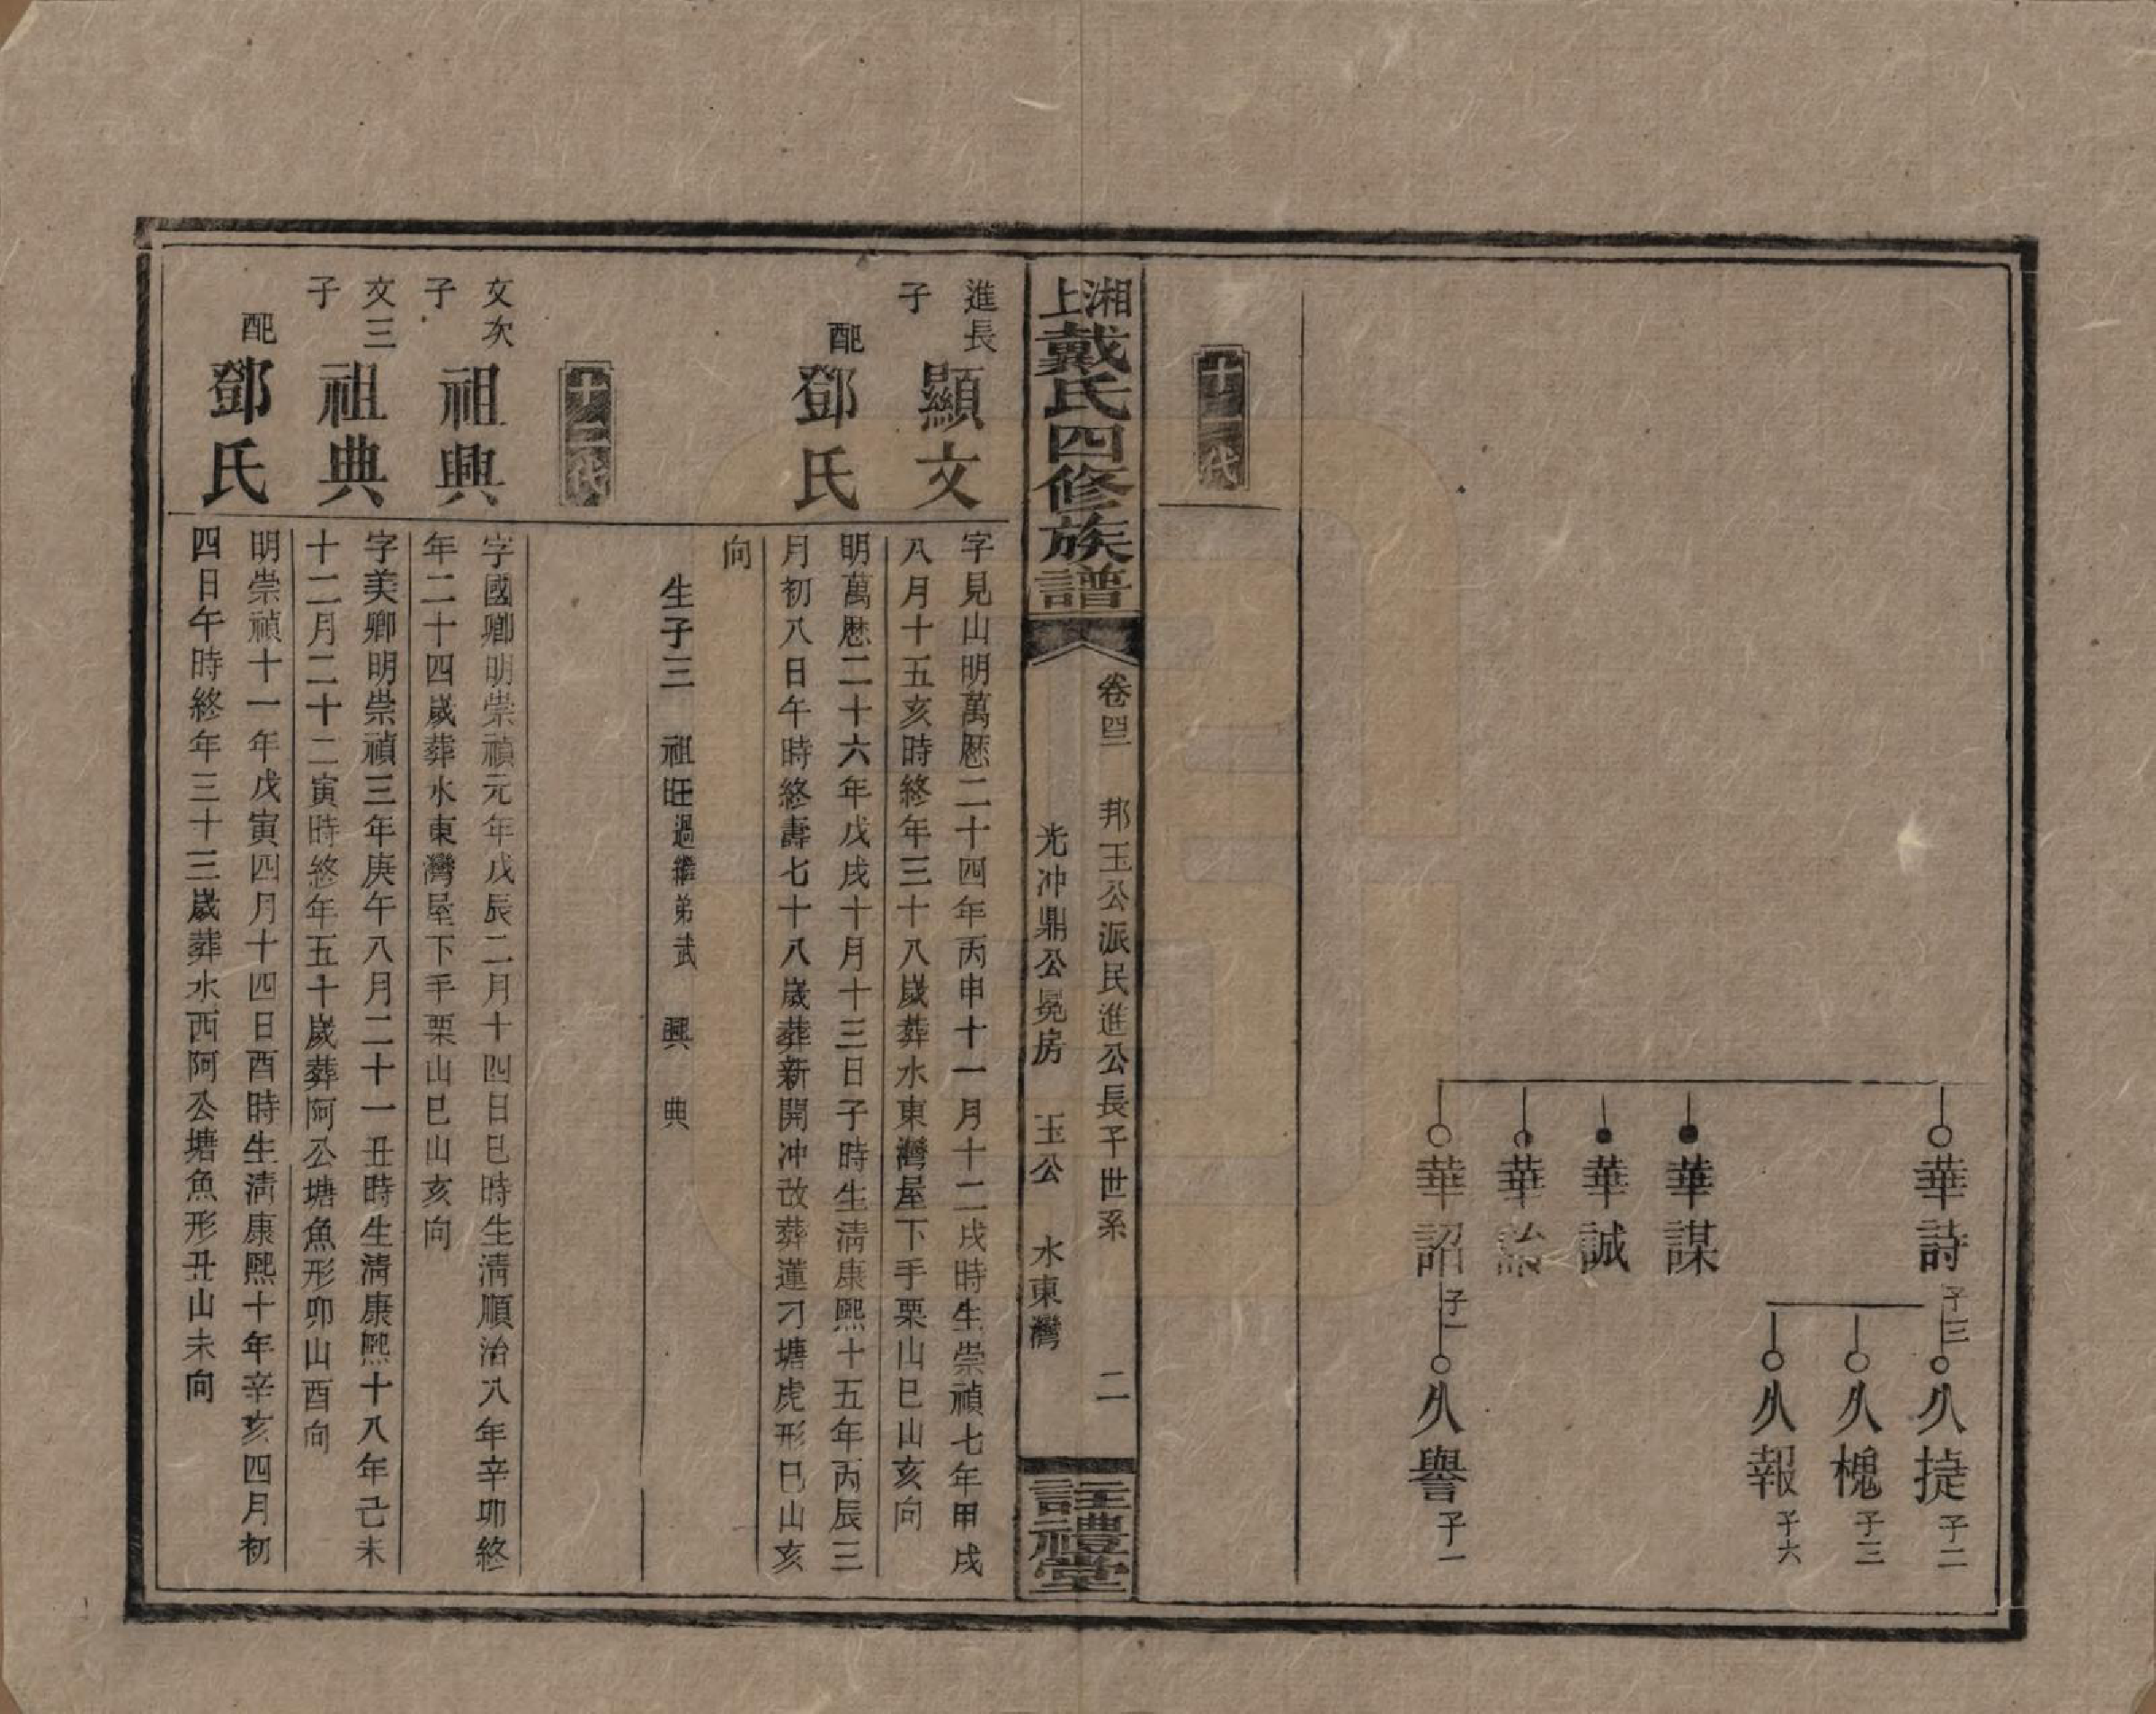 華詩 子三
久捷 子二
久槐 子三
久報 子六
華謀
華誠
華
華詔 子一
久譽 子一
十一代
湘上戴氏四修族譜
卷四 邦玉公派民進公長子世系 二
光冲鼎公晃房 玉公 水東灣
註禮堂
進長子 顯文
字見山明萬歷二十四年丙申十一月十二戌時生崇禎七年甲戌
八月十五亥時終年三十八歲葬水東灣屋下手栗山巳山亥向
配 鄧氏
明萬歷二十六年戊戌十月十三日子時生淸康熙十五年丙辰三
月初八日午時終壽七十八歲葬新開冲改葬蓮刁塘虎形巳山亥
向
生子三 祖旺過繼弟武 興 典
十二代
文次子 祖興
字國卿明崇禎元年戊辰二月十四日巳時生淸順治八年辛卯終
年二十四歲葬水東灣屋下手栗山巳山亥向
文三子 祖典
字美卿明崇禎三年庚午八月二十一丑時生淸康熙十八年己未
十二月二十二寅時終年五十歲葬阿公塘魚形卯山酉向
配 鄧氏
明崇禎十一年戊寅四月十四日酉時生淸康熙十年辛亥四月初
四日午時終年三十三歲葬水西阿公塘魚形丑山未向